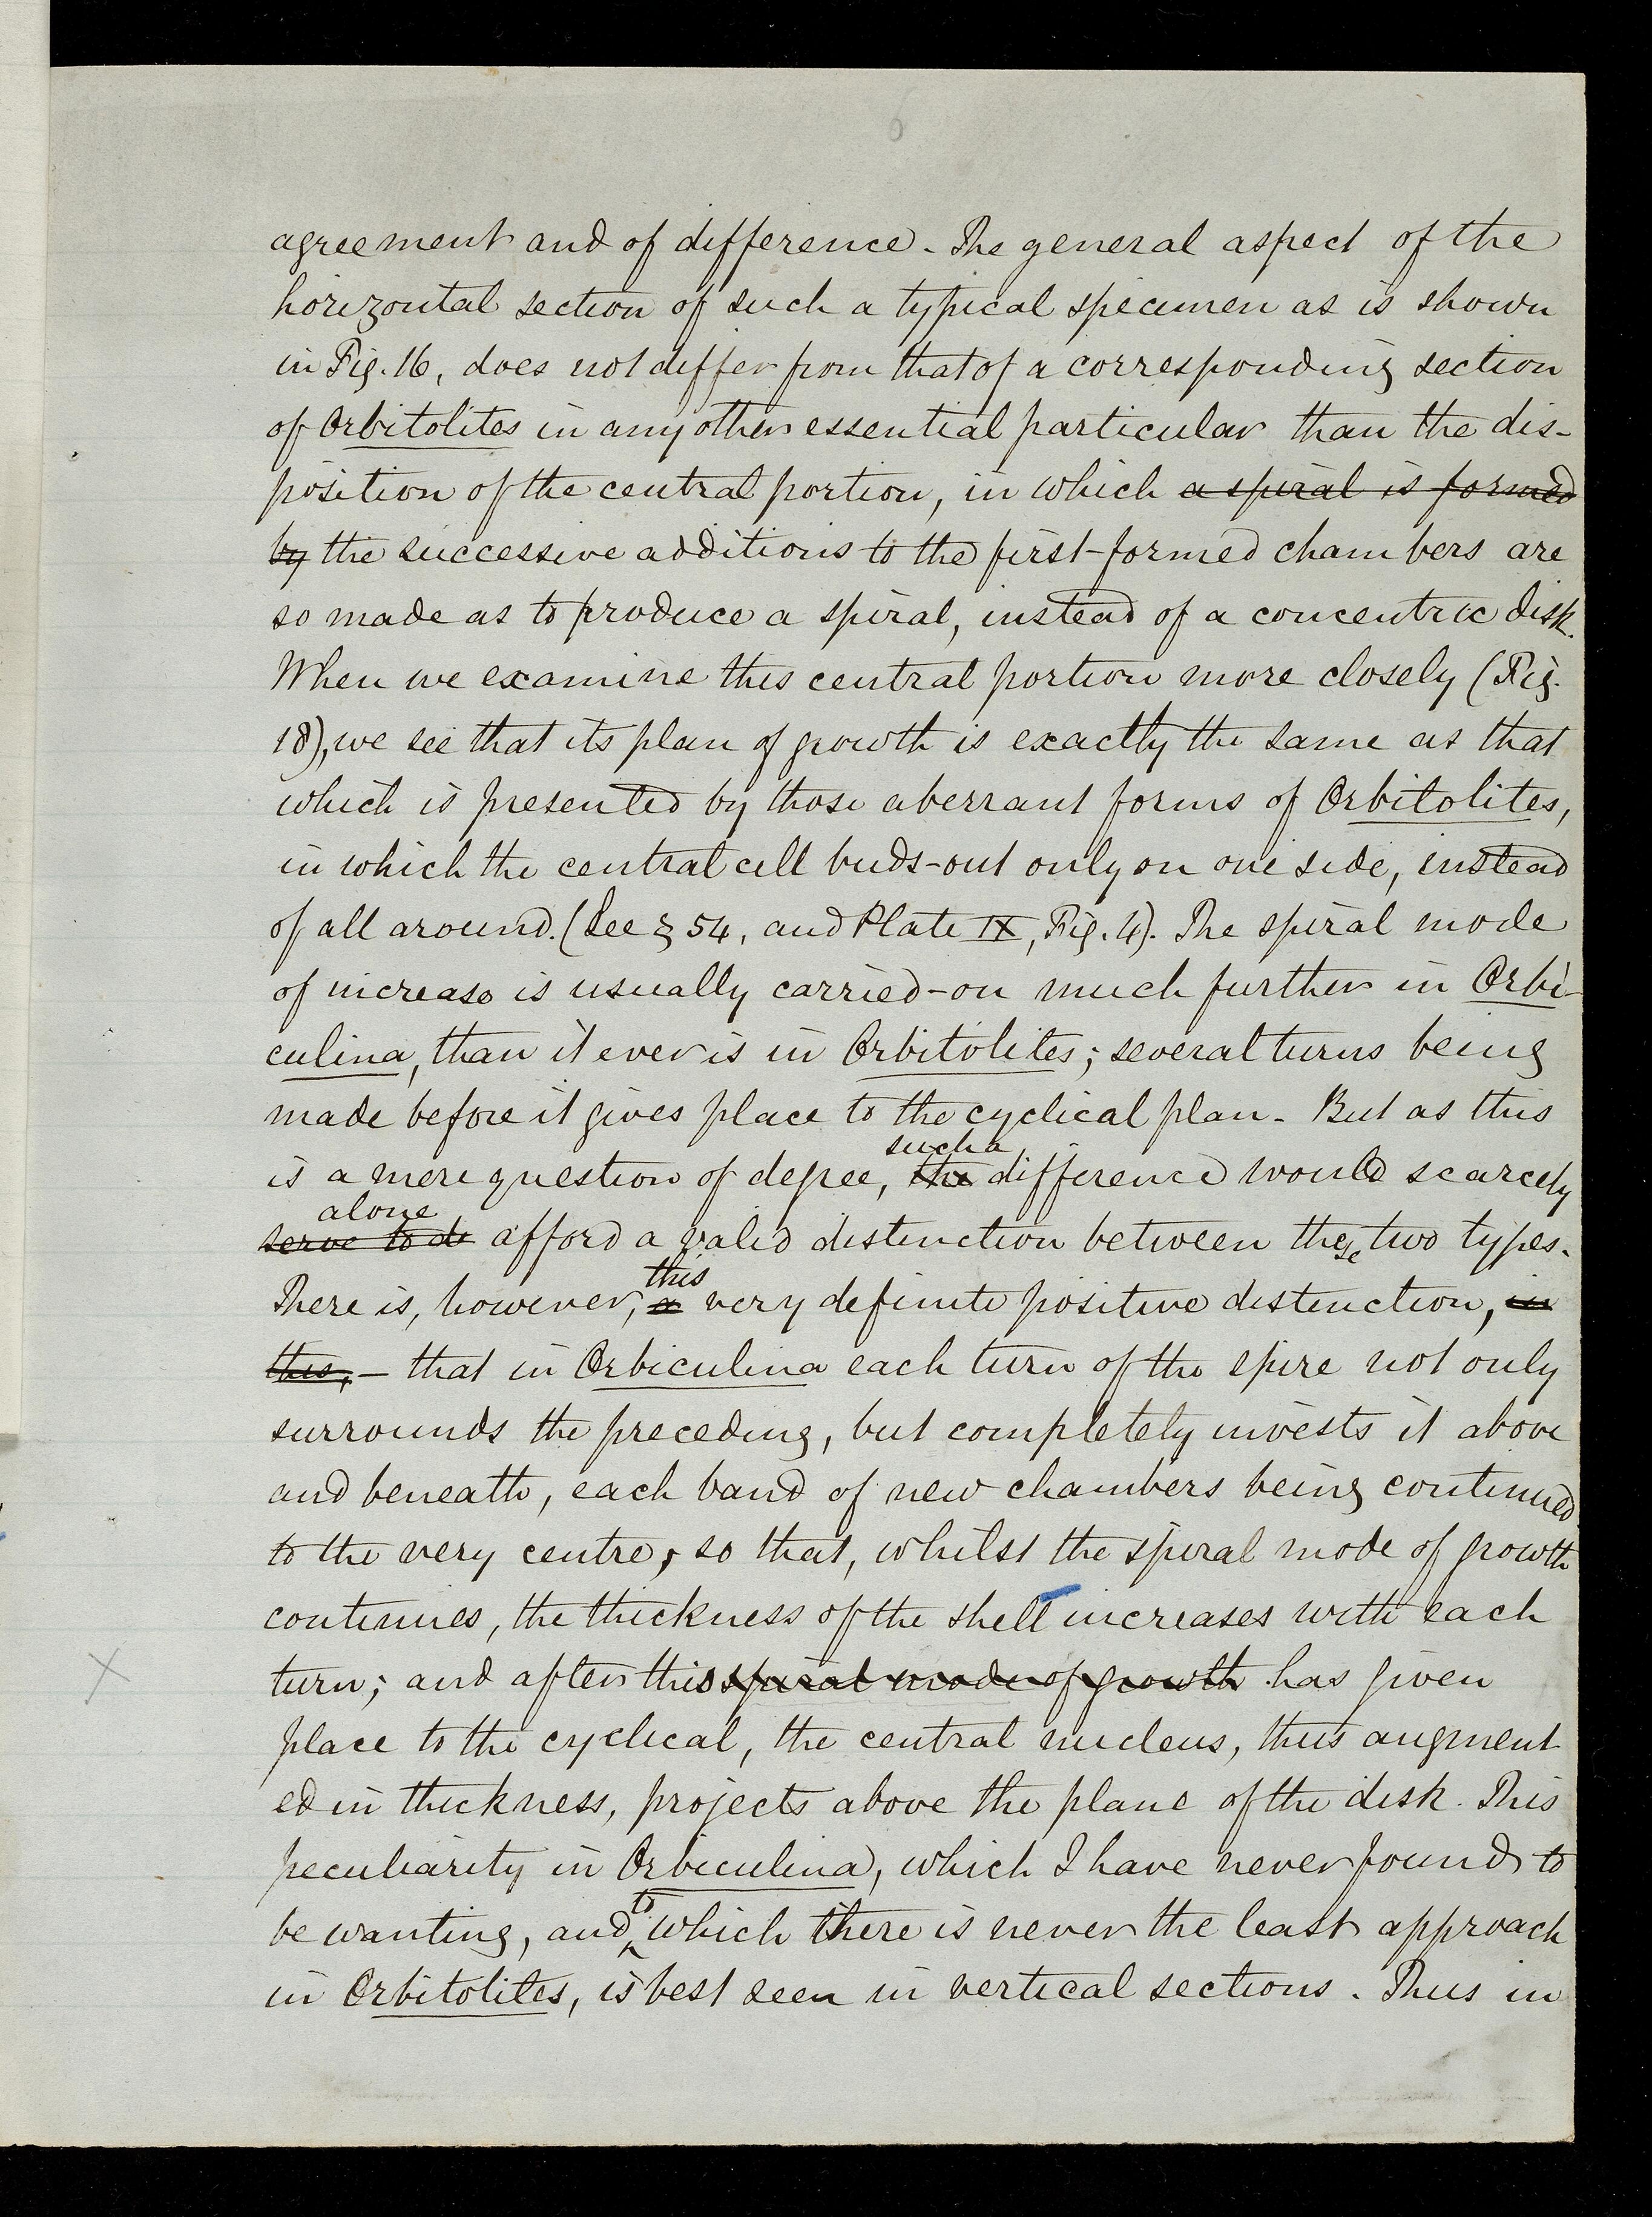 6
agreement and of difference. The general aspect of the
horizontal section of such a typical specimen as is shown
in Fig. 16, does not differ from that of a corresponding section
of Orbitolites in any other essential particular than the dis-
position of the central portion, in which a spiral is formed
by the successive additions to the first-formed chambers are
so made as to produce a spiral, instead of a concentric disk.
When we examine this central portion more closely (Fig.
18), we see that its plan of growth is exactly the same as that
which is presented by those aberrant forms of Orbitolites,
in which the central cell buds-out only on one side, instead
of all around. (See § 54, and Plate IX, Fig. 4). The spiral mode
of increase is usually carried-on much further in Orbi-
culina, than it ever is in Orbitolites; several turns being
made before it gives place to the cyclical plan. But as this
such a
is a mere question of degree, the difference would scarcely
alone
serve to de afford a valid distinction between these two types.
this
There is, however, a very definite positive distinction, in
this, — that in Orbiculina each turn of the spire not only
surrounds the preceding, but completely invests it above
and beneath, each band of new chambers being continued
to the very centre; so that, whilst the spiral mode of growth
continues, the thickness of the shell increases with each
turn; and after this spiral mode of growth has given
place to the cyclical, the central nucleus, thus augment
ed in thickness, projects above the plane of the disk. This
peculiarity in Orbiculina, which I have never found to
to
be wanting, and which there is never the least approach
in Orbitolites, is best seen in vertical sections. Thus in